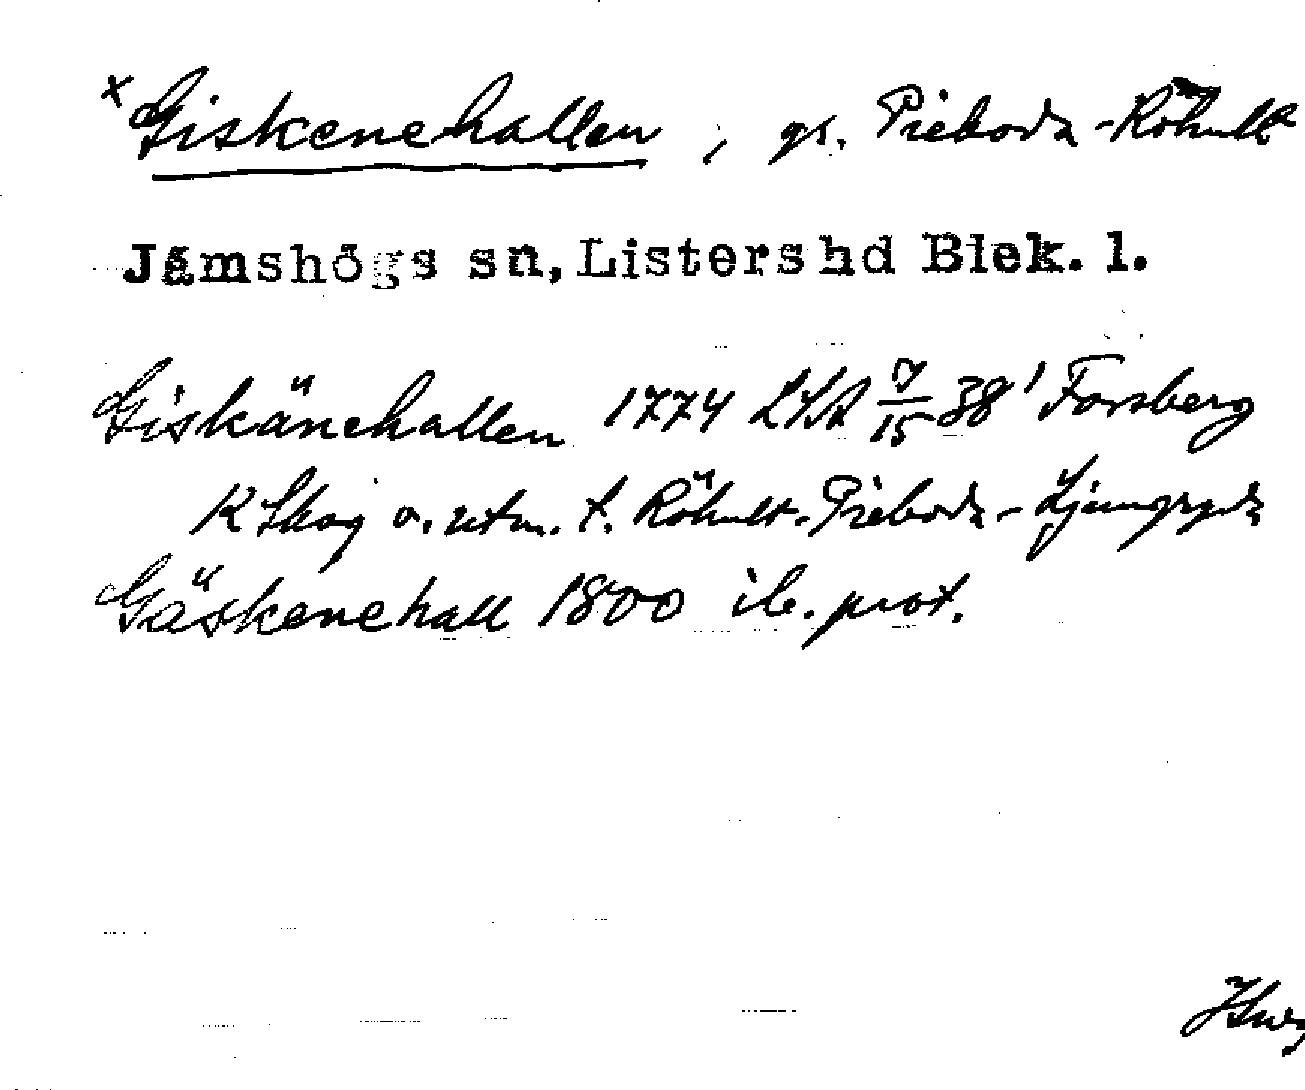 x Giskenehallen, gs. Pieboda-Röhult
Jämshögs sn, Listers hd Blek. l.
Giskänehallen 1774 LSA 7/15 38' Forsberg
K Skog o. utm. t. Röhult-Pieboda-Ljungryda
Gäskenehall 1800 ib. prot.